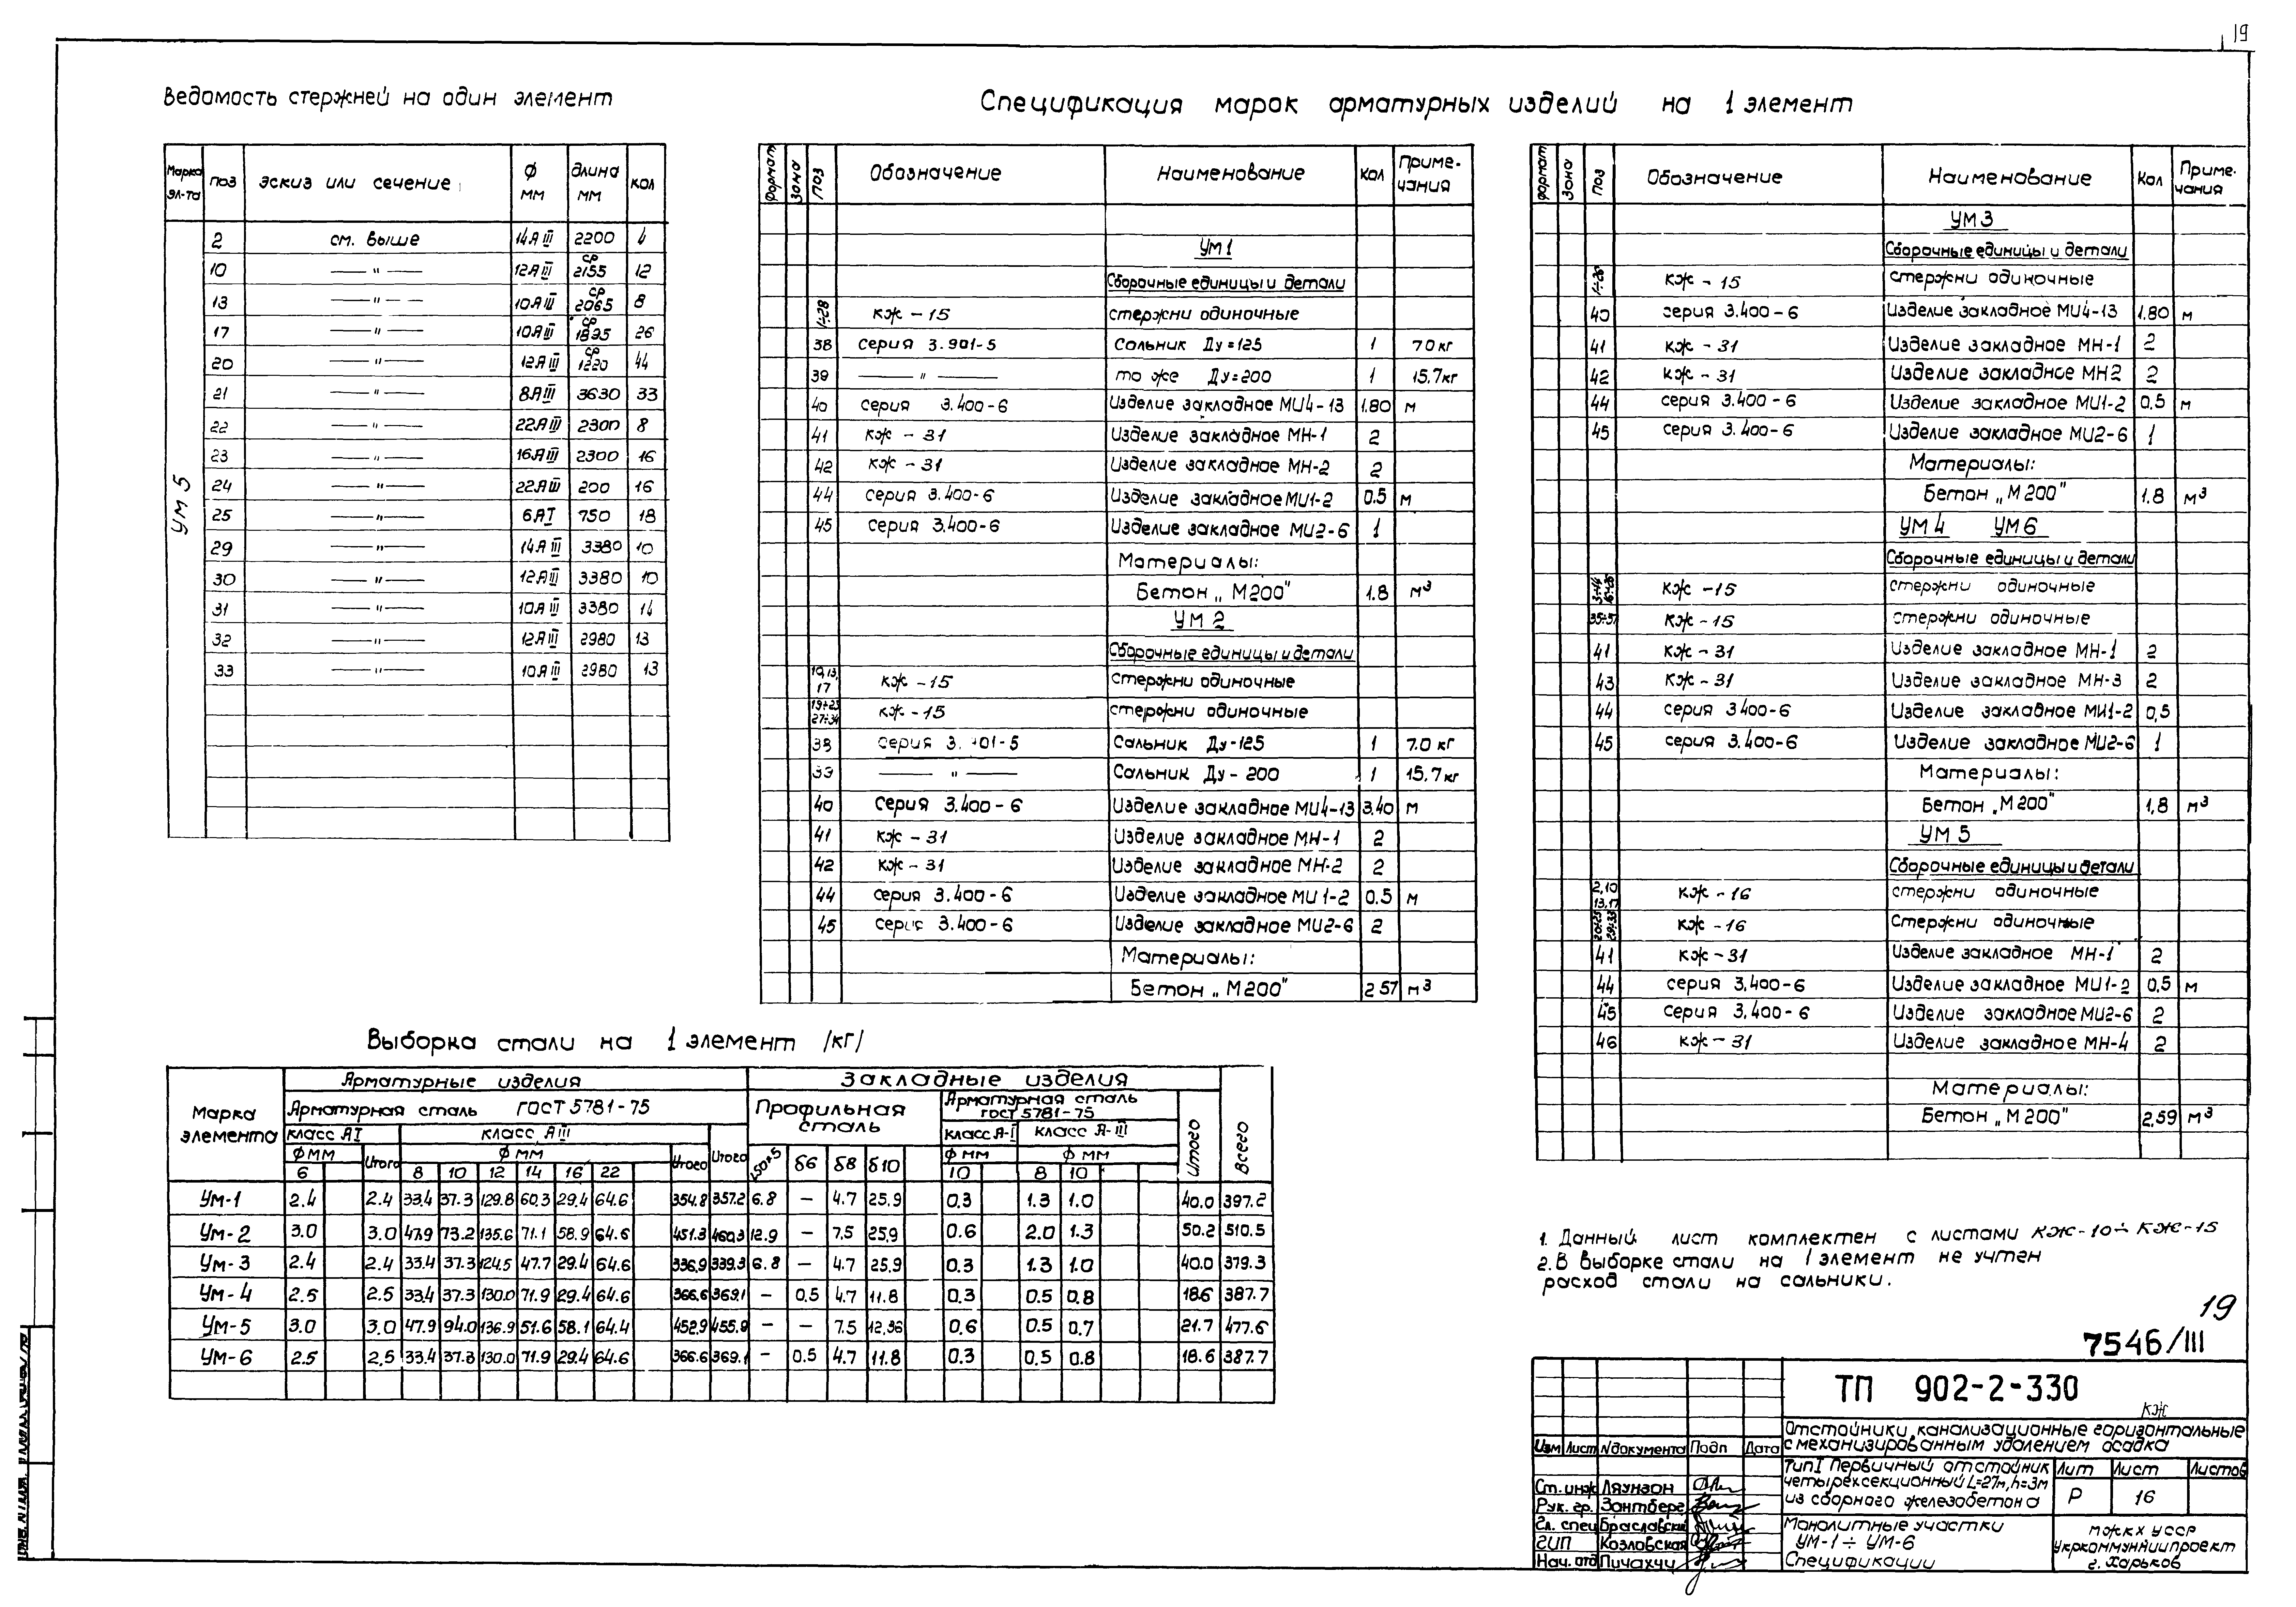 19
Ведомость стержней на один элемент
Марка эл-та поз эскиз или сечение ф мм длина мм кол
УМ 5
2 см. выше 14АIII 2200 4
10 —"— 12АIII ср 2155 12
13 —"— 10АIII ср 2065 8
17 —"— 10АIII ср 1895 26
20 —"— 12АIII ср 1220 44
21 —"— 8АIII 3630 33
22 —"— 22АIII 2300 8
23 —"— 16АIII 2300 16
24 —"— 22АIII 200 16
25 —"— 6АI 750 18
29 —"— 14АIII 3380 10
30 —"— 12АIII 3380 10
31 —"— 10АIII 3380 14
32 —"— 12АIII 2980 13
33 —"— 10АIII 2980 13
Спецификация марок арматурных изделий на 1 элемент
формат зона поз Обозначение Наименование Кол Приме-чания
УМ1
Сборочные единицы и детали
1÷28 кж-15 стержни одиночные
38 серия 3.901-5 Сальник Ду=125 1 70кг
39 —"— то же Ду=200 1 15.7кг
40 серия 3.400-6 Изделие закладное МU4-13 1.80 м
41 кж-31 Изделие закладное МН-1 2
42 кж-31 Изделие закладное МН-2 2
44 серия 3.400-6 Изделие закладное МU1-2 0.5 м
45 серия 3.400-6 Изделие закладное МU2-6 1
Материалы:
Бетон „М200" 1.8 м³
УМ 2
Сборочные единицы и детали
10,13, 17 кж-15 стержни одиночные
19÷23 27÷34 кж-15 стержни одиночные
38 серия 3. 01-5 Сальник Ду-125 1 7.0 кг
39 —"— Сальник Ду-200 1 15.7кг
40 серия 3.400-6 Изделие закладное МU4-13 3.40 м
41 кж-31 Изделие закладное МН-1 2
42 кж-31 Изделие закладное МН-2 2
44 серия 3.400-6 Изделие закладное МU1-2 0.5 м
45 серия 3.400-6 Изделие закладное МU2-6 2
Материалы:
Бетон „М200" 2 57 м³
формат зона поз Обозначение Наименование Кол Приме-чания
УМ3
Сборочные единицы и детали
кж-15 стержни одиночные
40 серия 3.400-6 Изделие закладное МU4-13 1.80 м
41 кж-31 Изделие закладное МН-1 2
42 кж-31 Изделие закладное МН2 2
44 серия 3.400-6 Изделие закладное МU1-2 0.5 м
45 серия 3.400-6 Изделие закладное МU2-6 1
Материалы:
Бетон „М200" 1.8 м³
УМ 4 УМ6
Сборочные единицы и детали
кж-15 стержни одиночные
35÷37 кж-15 стержни одиночные
41 кж-31 Изделие закладное МН-1 2
43 кж-31 Изделие закладное МН-3 2
44 серия 3400-6 Изделие закладное МИ1-2 0,5
45 серия 3.400-6 Изделие закладное МU2-6 1
Материалы:
Бетон „М200" 1,8 м³
УМ 5
Сборочные единицы и детали
2,10 13,17 кж-16 стержни одиночные
20÷25 29÷33 кж-16 Стержни одиночные
41 кж-31 Изделие закладное МН-1 2
44 серия 3.400-6 Изделие закладное МU1-2 0,5 м
45 серия 3.400-6 Изделие закладное МU2-6 2
46 кж-31 Изделие закладное МН-4 2
Материалы:
Бетон „М200" 2,59 м³
Выборка стали на 1 элемент /кг/
Марка элемента Арматурные изделия Закладные изделия Всего
Арматурная сталь ГОСТ 5781-75 Профильная сталь Арматурная сталь ГОСТ 5781-75 Итого
класс АI класс АIII Итого класс А-I класс А-III
ф мм Итого ф мм Итого ∟50×5 δ6 δ8 δ10 ф мм ф мм
6 8 10 12 14 16 22 10 8 10
УМ-1 2.4 2.4 33.4 37.3 129.8 60.3 29.4 64.6 354.8 357.2 6.8 — 4.7 25.9 0.3 1.3 1.0 40.0 397.2
УМ-2 3.0 3.0 47.9 73.2 135.6 71.1 58.9 64.6 451.3 460.3 12.9 — 7.5 25.9 0.6 2.0 1.3 50.2 510.5
УМ-3 2.4 2.4 33.4 37.3 124.5 47.7 29.4 64.6 336.9 339.3 6.8 — 4.7 25.9 0.3 1.3 1.0 40.0 379.3
УМ-4 2.5 2.5 33.4 37.3 130.0 71.9 29.4 64.6 366.6 369.1 — 0.5 4.7 11.8 0.3 0.5 0.8 18.6 387.7
УМ-5 3.0 3.0 47.9 94.0 136.9 51.6 58.1 64.4 452.9 455.9 — — 7.5 12,96 0.6 0.5 0.7 21.7 477.6
УМ-6 2.5 2,5 33.4 37.3 130.0 71.9 29.4 64.6 366.6 369.1 — 0.5 4.7 11.8 0.3 0,5 0.8 18.6 387.7
1. Данный лист комплектен с листами КЖ-10÷КЖ-15
2. В выборке стали на 1 элемент не учтен
расход стали на сальники.
19
7546/III
ТП 902-2-330
кж
Отстойники канализационные горизонтальные
с механизированным удалением осадка
Изм Лист N документа Подп Дата
Тип I Первичный отстойник
четырехсекционный L=27м, h=3м
из сборного железобетона
Лит Лист Листов
Р 16
Ст. инж Ляунзон
Рук. гр. Зонтберг
Гл. спец Браславский
ГИП Козловская
Нач. отд Пичахчи
Монолитные участки
УМ-1÷УМ-6
Спецификации
МЖКХ УССР
Укркоммунниипроект
г. Харьков